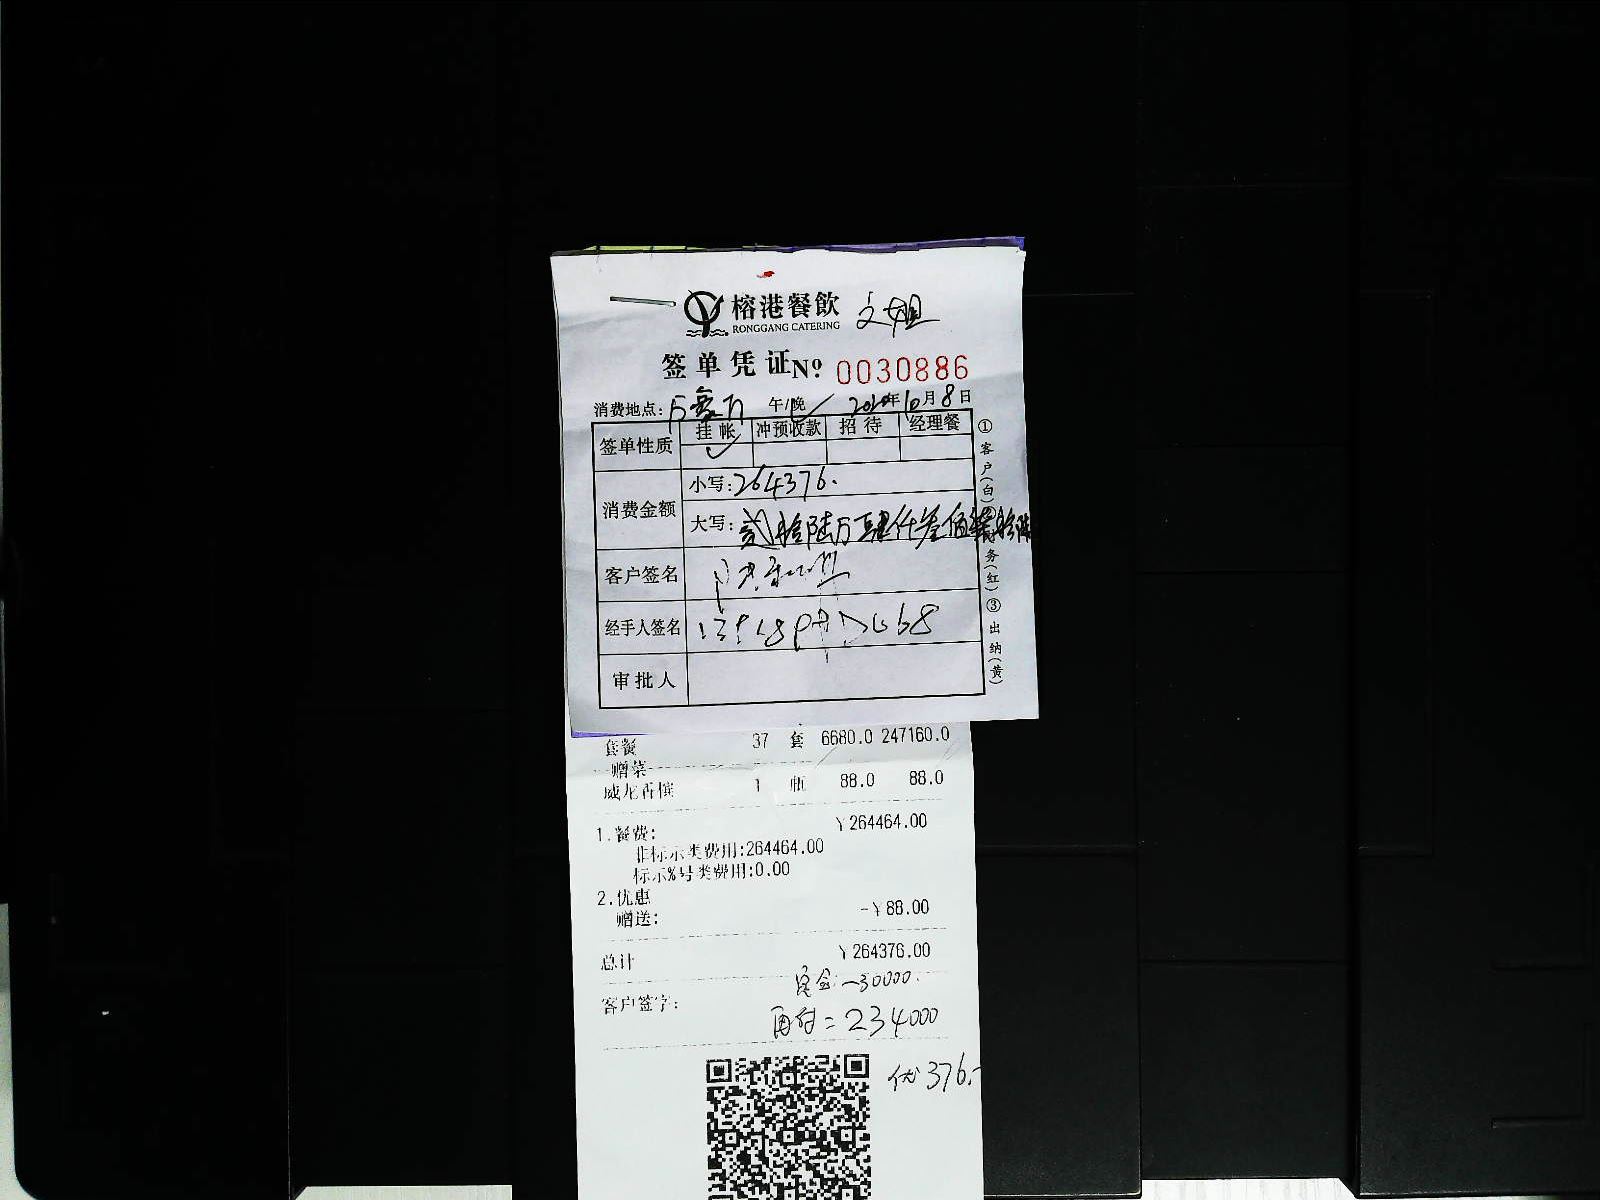 榕港餐飲 文姐
RONGGANG CATERING
签单凭证 Nº 0030886
消费地点: 午/晚 2020年10月8日
签单性质 挂帐 冲预收款 招待 经理餐
消费金额 小写:264376.
大写:贰拾陆万肆仟叁佰柒拾陆
客户签名
经手人签名
审批人
①客户(白) 务(红) ③出纳(黄)
套餐 37 套 6680.0 247160.0
赠菜
1 瓶 88.0 88.0
1.餐费: ¥264464.00
非标示类费用:264464.00
标示%号类费用:0.00
2.优惠
赠送: -¥88.00
总计 ¥264376.00
定金:-30000.
客户签字:
再付=234000
优376.-